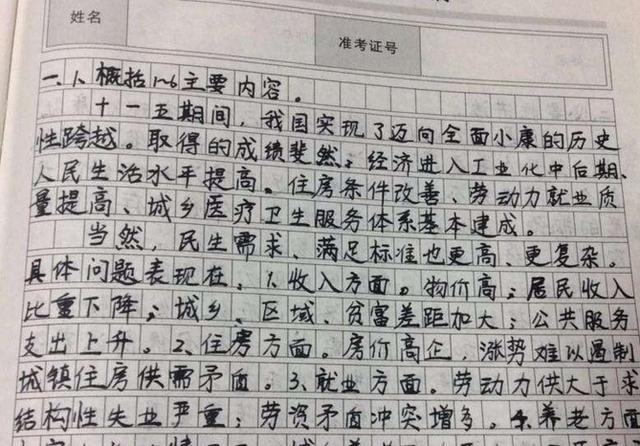 姓名
准考证号
一、1、概括1~6主要内容。
十一五期间,我国实现了迈向全面小康的历史
性跨越。取得的成绩斐然:经济进入工业化中后期、
人民生活水平提高。住房条件改善、劳动力就业质
量提高、城乡医疗卫生服务体系基本建成。
当然,民生需求、满足标准也更高、更复杂。
具体问题表现在:1.收入方面。物价高;居民收入
比重下降;城乡、区域、贫富差距加大;公共服务
支出上升。2、住房方面。房价高企,涨势难以遏制
城镇住房供需矛盾。3、就业方面。劳动力供大于求
结构性失业严重;劳资矛盾冲突增多。4.养老方面